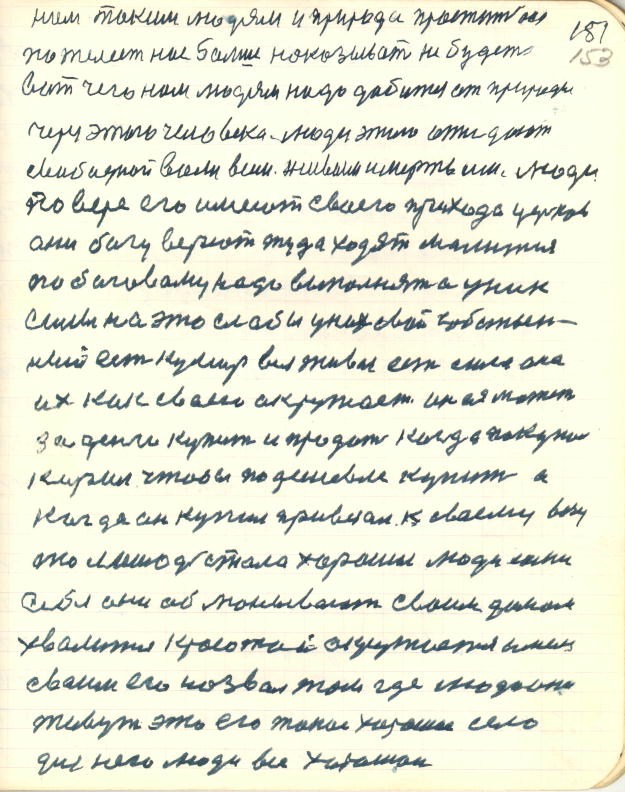 нам таким людям и природа простит
пожелеет нас больше наказыват не будет
181
153
вот чего нам людям надо добится от природы
через этого человека. люди этого ожидают
свободной воли всем. живым и мертвым. Люди
по вере его имеют своего прихода церков
они богу верют туда ходят малится
по боговому надо выполнят а у них
силы на это слабы у них свой собствен-
ний ест кумир вся жива ест сила она
их как своего окружает. иная может
за денги купит и продат когда
чтобы подешевле купит а
когда он купил привезал к своему
то лошад стала хароши люди сами
себя они обманывают своим домом
хвалится красотой окружается имен
своим его назвал там где люди они
живут это его такое хароше село
для него люди все хароши